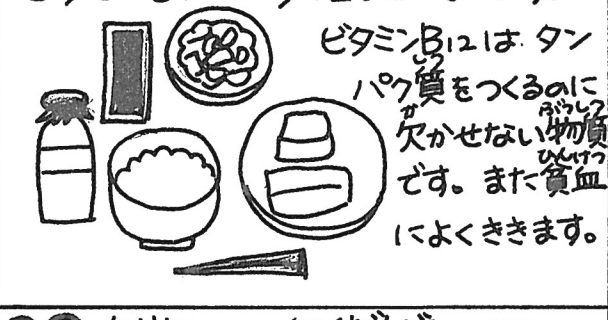 ビタミンB12は、タン
パク質をつくるのに
欠かせない物質
です。また貧血
によくききます。